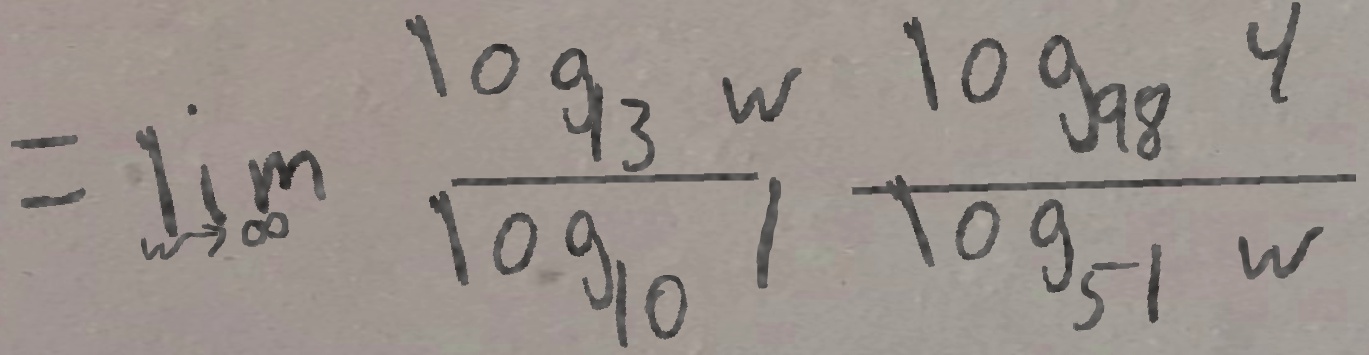 = \lim_{w \to \infty} \frac{\log_{13} w}{\log_{10} 1} \frac{\log_{98} 4}{\log_{51} w}